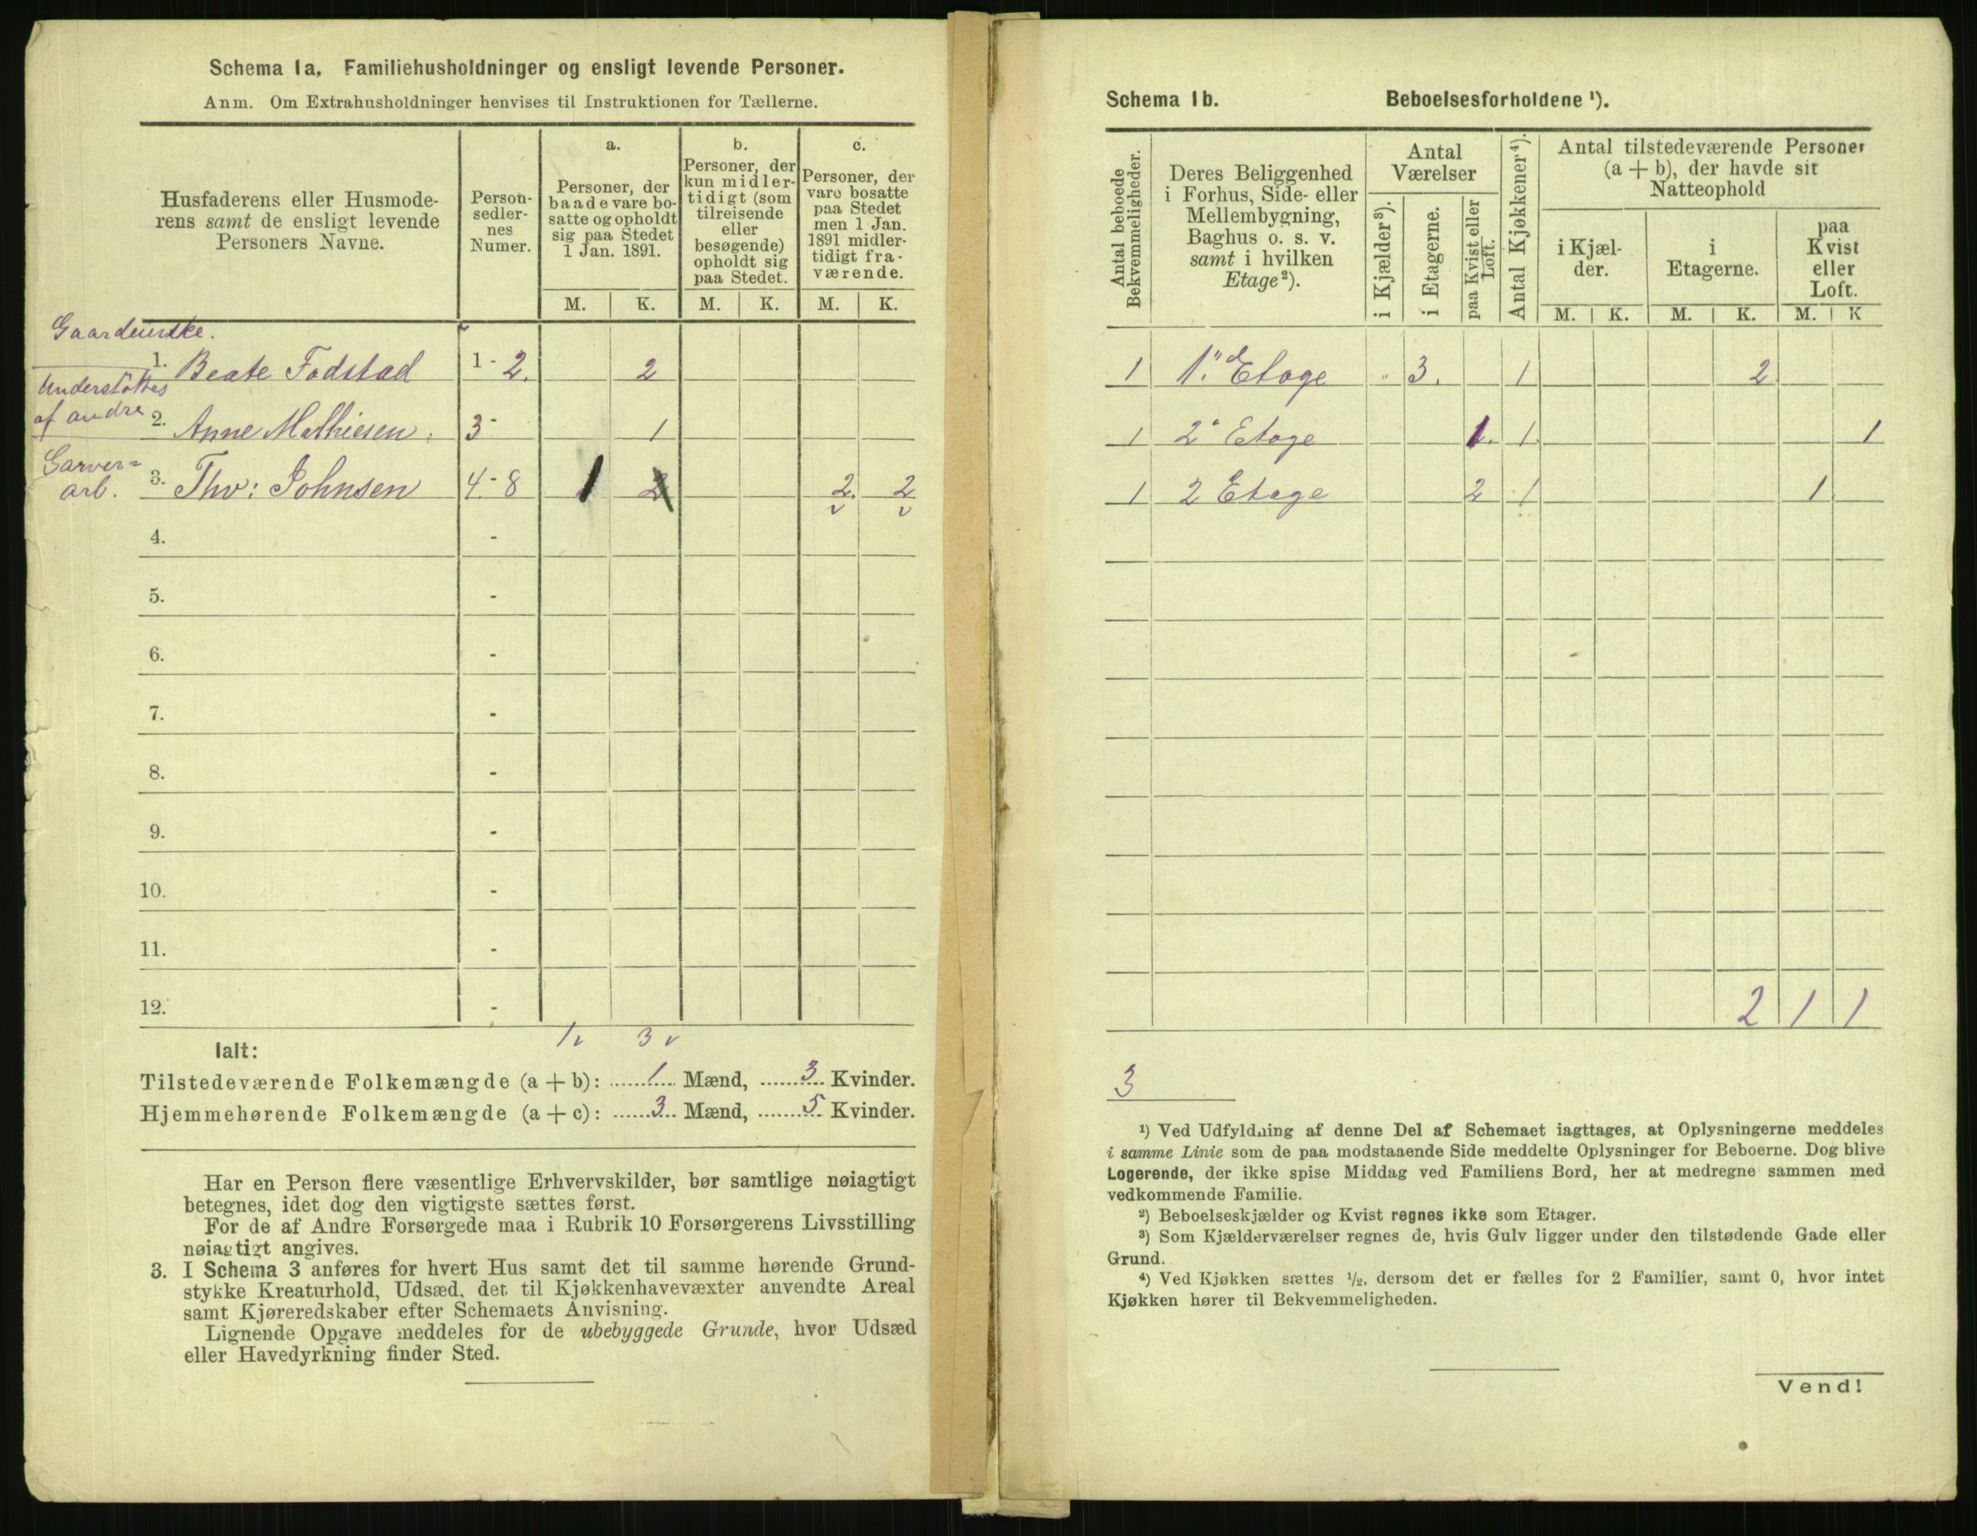 Schema 1a. Familiehusholdninger og ensligt levende Personer.
Anm. Om Extrahusholdninger henvises til Instruktionen for Tællerne.
Husfaderens eller Husmode-
rens samt de ensligt levende
Personers Navne.
Person-
sedler-
nes
Numer.
a.
Personer, der
baade vare bo-
satte og opholdt
sig paa Stedet
1 Jan. 1891.
b.
Personer, der
kun midler-
tidigt (som
tilreisende
eller
besøgende)
opholdt sig
paa Stedet.
c.
Personer, der
vare bosatte
paa Stedet
men 1 Jan.
1891 midler-
tidigt fra-
værende.
M. K. M. K. M. K.
Gaardeierske.
1. Beate Fodstad 1 - 2. 2
Understøttes
af andre
2. Anne Mathiesen. 3 - 1
Garver=
arb.
3. Thv: Johnsen 4 - 8 1 2 2. 2
v v
4. -
5. -
6. -
7. -
8. -
9. -
10. -
11. -
12. -
1v 3v
Ialt:
Tilstedeværende Folkemængde (a + b): 1 Mænd, 3 Kvinder.
Hjemmehørende Folkemængde (a + c): 3 Mænd, 5 Kvinder.
Har en Person flere væsentlige Erhvervskilder, bør samtlige nøiagtigt
betegnes, idet dog den vigtigste sættes først.
For de af Andre Forsørgede maa i Rubrik 10 Forsørgerens Livsstilling
nøiagtigt angives.
3. I Schema 3 anføres for hvert Hus samt det til samme hørende Grund-
stykke Kreaturhold, Udsæd, det til Kjøkkenhavevæxter anvendte Areal
samt Kjøreredskaber efter Schemaets Anvisning.
Lignende Opgave meddeles for de ubebyggede Grunde, hvor Udsæd
eller Havedyrkning finder Sted.
Schema 1b. Beboelsesforholdene ¹).
Antal beboede
Bekvemmeligheder.
Deres Beliggenhed
i Forhus, Side- eller
Mellembygning,
Baghus o. s. v.
samt i hvilken
Etage²).
Antal
Værelser
i Kjælder³).
i Etagerne.
paa Kvist eller
Loft.
Antal Kjøkkener⁴).
Antal tilstedeværende Personer
(a + b), der havde sit
Natteophold
i Kjæl-
der.
i
Etagerne.
paa
Kvist
eller
Loft.
M. K. M. K. M. K
1 1. Etage " 3. 1 2
1 2 Etage 1. 1. 1
1 2 Etage 2 1 1
2 1 1
3
¹) Ved Udfyldning af denne Del af Schemaet iagttages, at Oplysningerne meddeles
i samme Linie som de paa modstaaende Side meddelte Oplysninger for Beboerne. Dog blive
Logerende, der ikke spise Middag ved Familiens Bord, her at medregne sammen med
vedkommende Familie.
²) Beboelseskjælder og Kvist regnes ikke som Etager.
³) Som Kjælderværelser regnes de, hvis Gulv ligger under den tilstødende Gade eller
Grund.
⁴) Ved Kjøkken sættes ½, dersom det er fælles for 2 Familier, samt 0, hvor intet
Kjøkken hører til Bekvemmeligheden.
Vend!